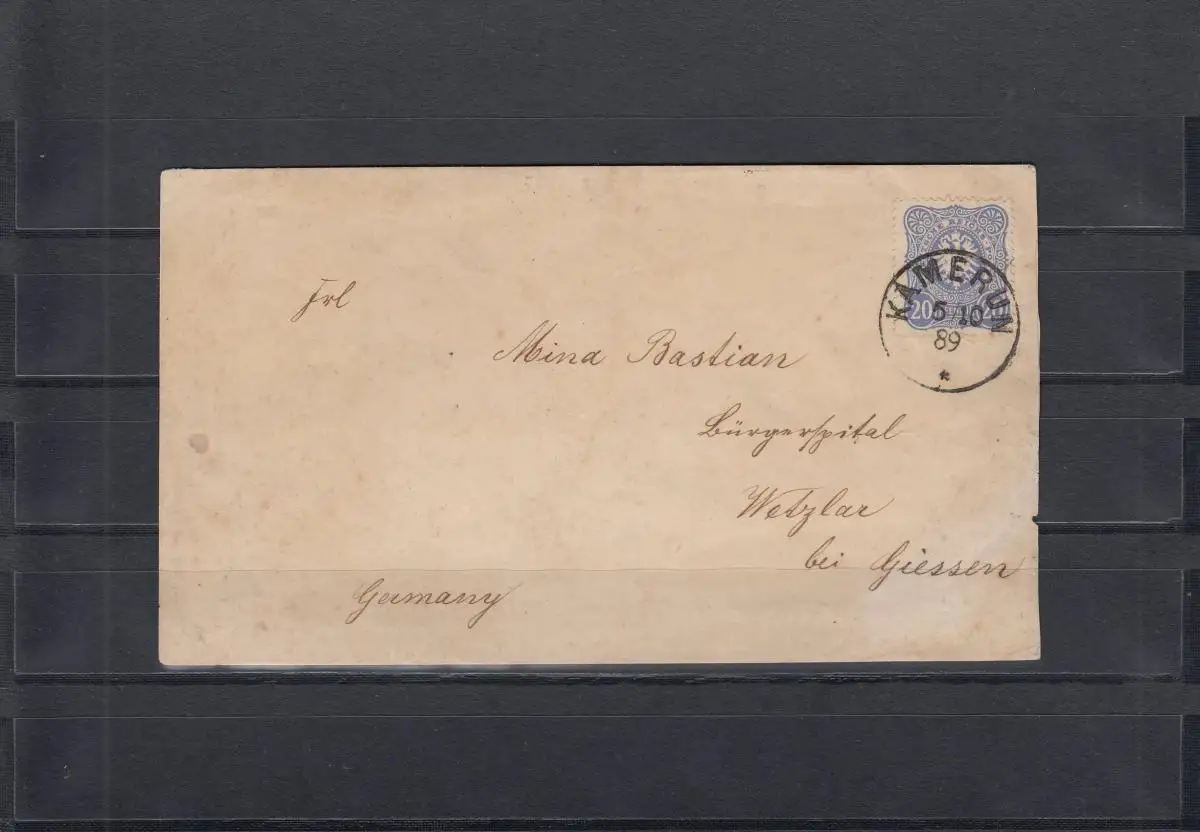 KAMERUN
5/10
89
*
20 20
Frl
Mina Bastian
Bürgerspital
Wetzlar
bei Giessen
Germany